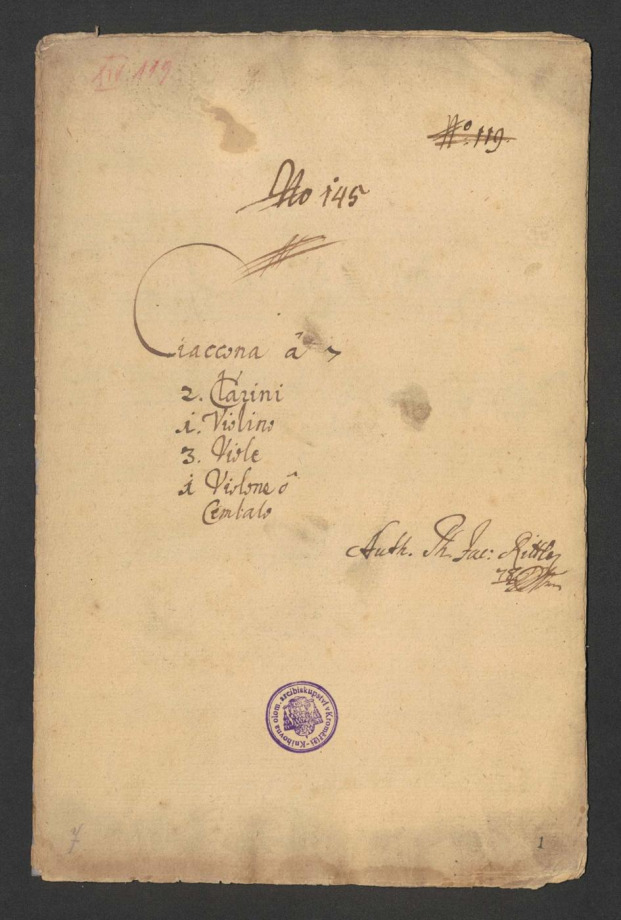 IV. 119.
No. 119.
No 145
Ciaccona â 7
2. Clarini
1. Violino
3. Viole
1 Violone ô
Cembalo
Auth. Ph. Jac: Rittler
Knihovna olom. arcibiskupství v Kroměříži
7
1